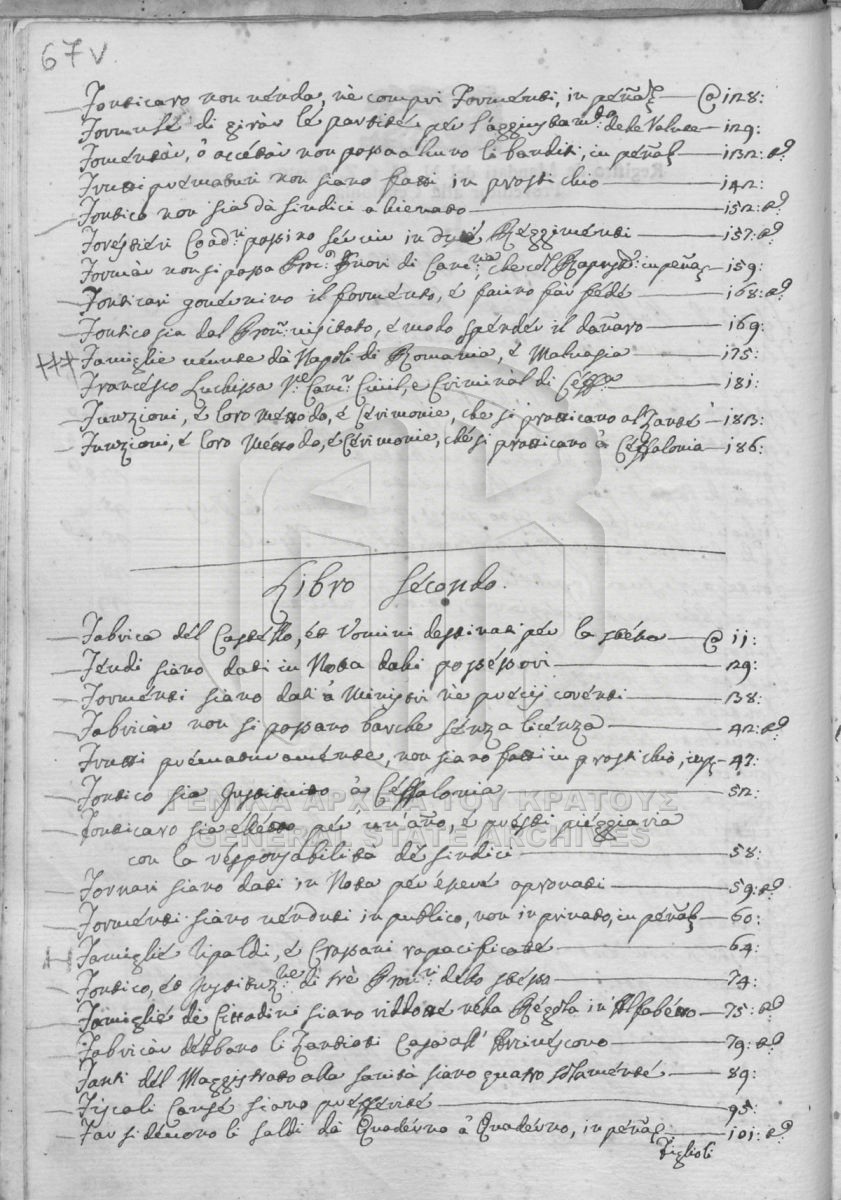 67 v
Fonticaro non venda, nè compri Formenti, in pena — @ 128:
Formule di girar le partite per l'aggiustam.to dele Valute — 129:
Fomentar, ò accetar non possa alcuno li banditi, in pena — 132: t.o
Frutti prematuri non siano fatti in prostichio — 142:
Fontico non sia dà sindici alienato — 152: t.o
Forestieri Coad.ri possino servir in due Reggimenti — 157: t.o
Formar non si possa Proc.o fuori di Canc.ria che col in pena — 159:
Fonticari governino il formento, è faccino far fede — 168: t.o
Fontico sia dal Prov.r visitato, è modo spender il danaro — 169:
Famiglie venute dà Napoli di Romania, è Malvasia — 175:
Francesco Luchissa V.e Canc.r Civil, e Criminal di Ceff.a — 181:
Funzioni, è loro mettodo, è Cerimonie, che si pratticano al Zante — 183:
Funzioni, è loro mettodo, è Cerimonie, che si pratticano à Ceffalonia — 186:
Libro Secondo.
Fabrica del Castello, et Uomini destinati per la stessa — @ 11:
Feudi siano dati in Nota dali possessori — 29:
Formenti siano dati à Ministri nè precij corenti — 38:
Fabricar non si possano barche senza licenza — 42: t.o
Frutti prematuramente, non siano fatti in prostichio, in p. — 47:
Fontico sia Instituito à Ceffalonia — 52:
ΓΕΝΙΚΑ ΑΡΧΕΙΑ ΤΟΥ ΚΡΑΤΟΥΣ
Fonticaro sia eletto per un'anno, è presti pieggiaria
GENERAL STATE ARCHIVES
con la responsabilità de sindici — 58:
Fornari siano dati in Nota per essere aprovati — 59: t.o
Formenti siano venduti in publico, non in privato, in pena — 60:
Famiglie Ripaldi, è Crassani rapacificate — 64:
Fontico, et Instituz.ne di trè Prov.ri dello stesso — 74:
Famiglie de Cittadini siano ridotte nela Regola in Alfabetto — 75: t.o
Fabricar debbano li Zantioti Casa all' — 79: t.o
Fanti del Maggistrato alla sanità siano quatro solamente — 89:
Fiscali Cause siano prefferite — 95:
Far si devono li saldi dà Quaderno à Quaderno, in pena — 101: t.o
Figlioli